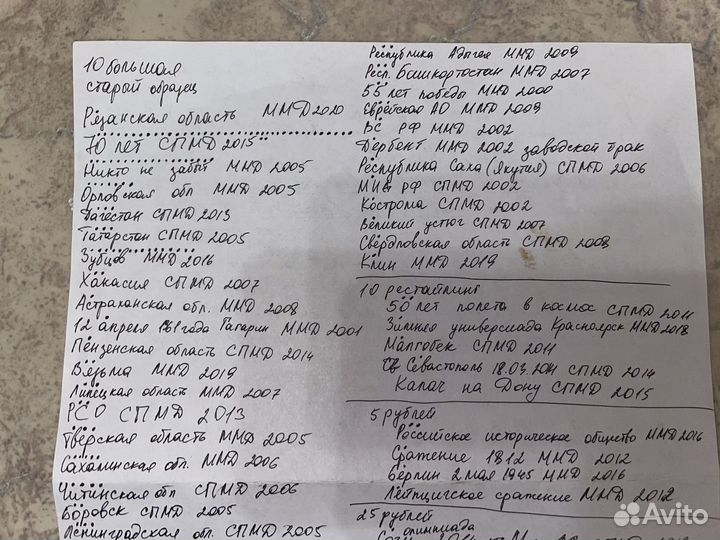 10 большая
старый образец
Рязанская область ММД 2020
70 лет СПМД 2015
Никто не забыт ММД 2005
Орловская обл ММД 2005
Дагестан СПМД 2013
Татарстан СПМД 2005
Зубцов ММД 2016
Хакасия СПМД 2007
Астраханская обл. ММД 2008
12 апреля 1961 года Гагарин ММД 2001
Пензенская область СПМД 2014
Вязьма ММД 2019
Липецкая область ММД 2007
РСО СПМД 2013
Тверская область ММД 2005
Сахалинская обл. ММД 2006
Читинская обл СПМД 2006
Боровск СПМД 2005
Ленинградская обл. СПМД 2005
Республика Адыгея ММД 2009
Респ. Башкортостан ММД 2007
55 лет победы ММД 2000
Еврейская АО ММД 2009
ВС РФ ММД 2002
Дербент ММД 2002 заводской брак
Республика Саха (Якутия) СПМД 2006
РФ СПМД 2002
Кострома СПМД 2002
Великий устюг СПМД 2007
Свердловская область СПМД 2008
Клин ММД 2019
10 рестайлинг
50 лет полета в космос СПМД 2011
Зимняя универсиада Красноярск ММД 2018
Малгобек СПМД 2011
Севастополь 18.03.2014 СПМД 2014
Калач на Дону СПМД 2015
5 рублей
Российское историческое общество ММД 2016
Сражение 1812 ММД 2012
Берлин 2 мая 1945 ММД 2016
Лейпцигское сражение ММД 2012
25 рублей
олимпиада
Avito